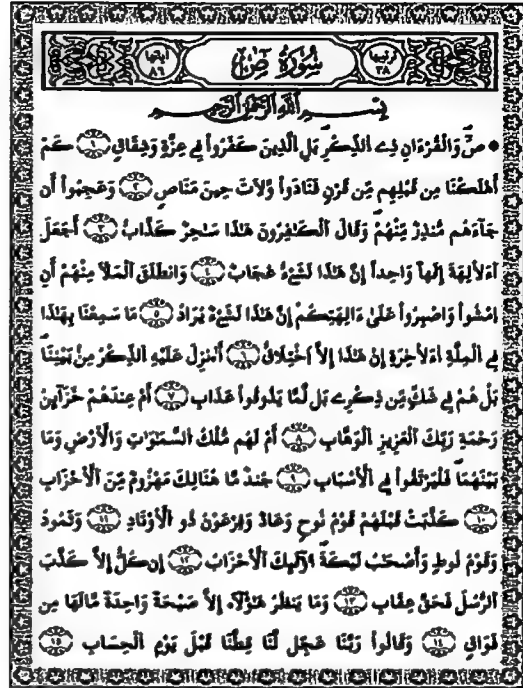 ترتيبها ٣٨ سُورَةُ صٓ آياتها ٨٦
بِسْمِ اللَّهِ الرَّحْمَٰنِ الرَّحِيمِ
صٓ وَالْقُرْءَانِ ذِے اِلذِّكْرِ بَلِ الَّذِينَ كَفَرُواْ فِے عِزَّةٖ وَشِقَاقٖ ١ كَمَ
اَهْلَكْنَا مِن قَبْلِهِم مِّن قَرْنٖ فَنَادَواْ وَّلَاتَ حِينَ مَنَاصٖ ٢ وَعَجِبُواْ أَن
جَآءَهُم مُّنذِرٞ مِّنْهُمْ وَقَالَ اَلْكَٰفِرُونَ هَٰذَا سَٰحِرٞ كَذَّابٌ ٣ اَجَعَلَ
اَ۬لَالِهَةَ إِلَٰهاٗ وَٰحِداً إِنَّ هَٰذَا لَشَےْءٌ عُجَابٞ ٤ وَانطَلَقَ اَلْمَلَأُ مِنْهُمُ أَنِ
اِمْشُواْ وَاصْبِرُواْ عَلَىٰ ءَالِهَتِكُمُ إِنَّ هَٰذَا لَشَےْءٞ يُرَادُ ٥ مَا سَمِعْنَا بِهَٰذَا
فِے اِلْمِلَّةِ اِ۬لَاخِرَةِ إِنْ هَٰذَا إِلَّا اَخْتِلَٰقٌ ٦ اَ۟نزِلَ عَلَيْهِ اِلذِّكْرُ مِنۢ بَيْنِنَا
بَلْ هُمْ فِے شَكّٖ مِّن ذِكْرِے بَل لَّمَّا يَذُوقُواْ عَذَابِ ٧ أَمْ عِندَهُمْ خَزَآئِنُ
رَحْمَةِ رَبِّكَ اَلْعَزِيزِ اِلْوَهَّابِ ٨ أَمْ لَهُم مُّلْكُ السَّمَٰوَٰتِ وَالْأَرْضِ وَمَا
بَيْنَهُمَا فَلْيَرْتَقُواْ فِے اِلْأَسْبَٰبِ ٩ جُندٞ مَّا هُنَالِكَ مَهْزُومٞ مِّنَ اَلْأَحْزَابِ
١٠ كَذَّبَتْ قَبْلَهُمْ قَوْمُ نُوحٖ وَعَادٞ وَفِرْعَوْنُ ذُو اُلْأَوْتَادِ ١١ وَثَمُودُ
وَقَوْمُ لُوطٖ وَأَصْحَٰبُ لَيْكَةَ أُوْلَٰٓئِكَ اَلْأَحْزَابُ ١٢ إِن كُلٌّ إِلَّا كَذَّبَ
اَلرُّسُلَ فَحَقَّ عِقَابِ ١٣ وَمَا يَنظُرُ هَٰٓؤُلَآءِ الَّا صَيْحَةٗ وَٰحِدَةٗ مَّا لَهَا مِن
فَوَاقٖ ١٤ وَقَالُواْ رَبَّنَا عَجِّل لَّنَا قِطَّنَا قَبْلَ يَوْمِ اِلْحِسَابِ ١٥